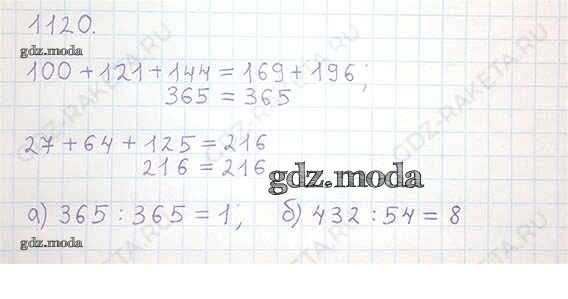 1120.
gdz.moda
100 + 121 + 144 = 169 + 196;
365 = 365
27 + 64 + 125 = 216
216 = 216
gdz.moda
а) 365 : 365 = 1; б) 432 : 54 = 8
gdz.moda
GDZ-RAKETA.RU
GDZ-RAKETA.RU
GDZ-RAKETA.RU
GDZ-RAKETA.RU